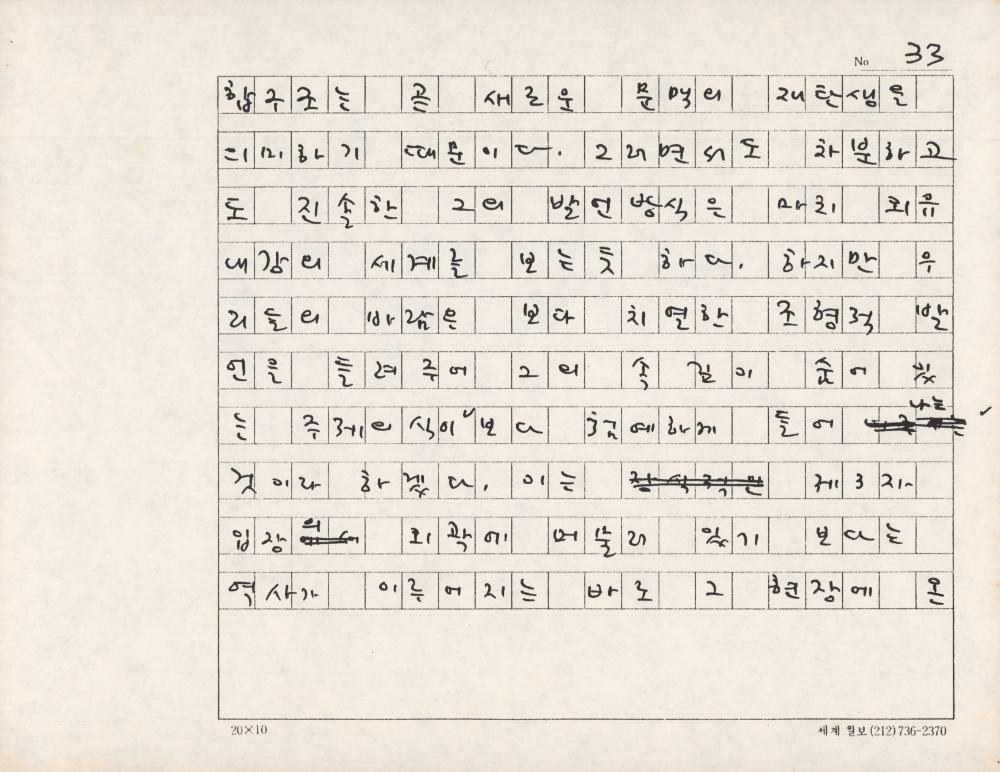 No 33
합구조는 곧 새로운 문맥의 재탄생을
의미하기 때문이다. 그러면서도 차분하고
도 진솔한 그의 발언방식은 마치 외유
내강의 세계를 보는듯 하다. 하지만 우
리들의 바람은 보다 치열한 조형적 발
언을 들려주어 그의 속 깊이 숨어 있
는 주제의식이 보다 첨예하게 들어 나는
것이라 하겠다. 이는 제3자
입장의 외곽에 머물러 있기 보다는
역사가 이루어지는 바로 그 현장에 온
20×10 세계일보 (212) 736-2370